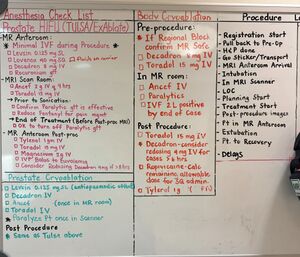 Anesthesia Check List
Prostate HIFU (TULSA/ExAblate)
MR Anteroom:
* Minimal IVF during Procedure *
Levsin 0.125 mg SL
Lovenox 40 mg SQ
Decadron IV
Rocuronium gtt
MRI Scan Room:
Ancef 2g IV q 4hrs
Toradol 15 mg IV
→ Prior to Sonication:
Confirm Paralytic gtt is effective
Reduction of Compliance
→ End of Treatment (Before Post-proc MRI)
Ask to turn off Paralytic gtt
MR Anteroom Post-proc
Tylenol 1gm IV
Toradol 15 mg IV
Magnesium IV
IVF Bolus to Euvolemia
Consider Redosing Decadron 4mg if > 8hrs
Prostate Cryoablation
Levsin 0.125 mg SL (antispasmodic)
Decadron IV
Ancef (once in MR room)
Toradol IV
* Paralyze Pt once in Scanner
Post Procedure
* Same as Tulsa above
Body Cryoablation
Pre-procedure:
* If Regional Block confirm MR Safe
Decadron 10 mg IV
Toradol 15 mg IV
In MR room:
Ancef IV
Paralytics
IVF 2L positive by end of Case
Post Procedure:
Toradol 15 mg IV
Decadron - consider redosing 4 mg IV for cases > 6 hrs
Bupivacaine - Calc remaining allowable dose for IR admin
Tylenol 1g
Procedure
- Registration Start
- Pull back to Pre-Op
- HCP done
- Go Sticker/Transport
- MRI Anteroom Arrival
- Intubation
- In MRI Scanner
- LOC
- Planning Start
- Treatment Start
- Post-procedure images
- Pt in MR Anteroom
- Extubation
- Pt to Recovery
- Delays